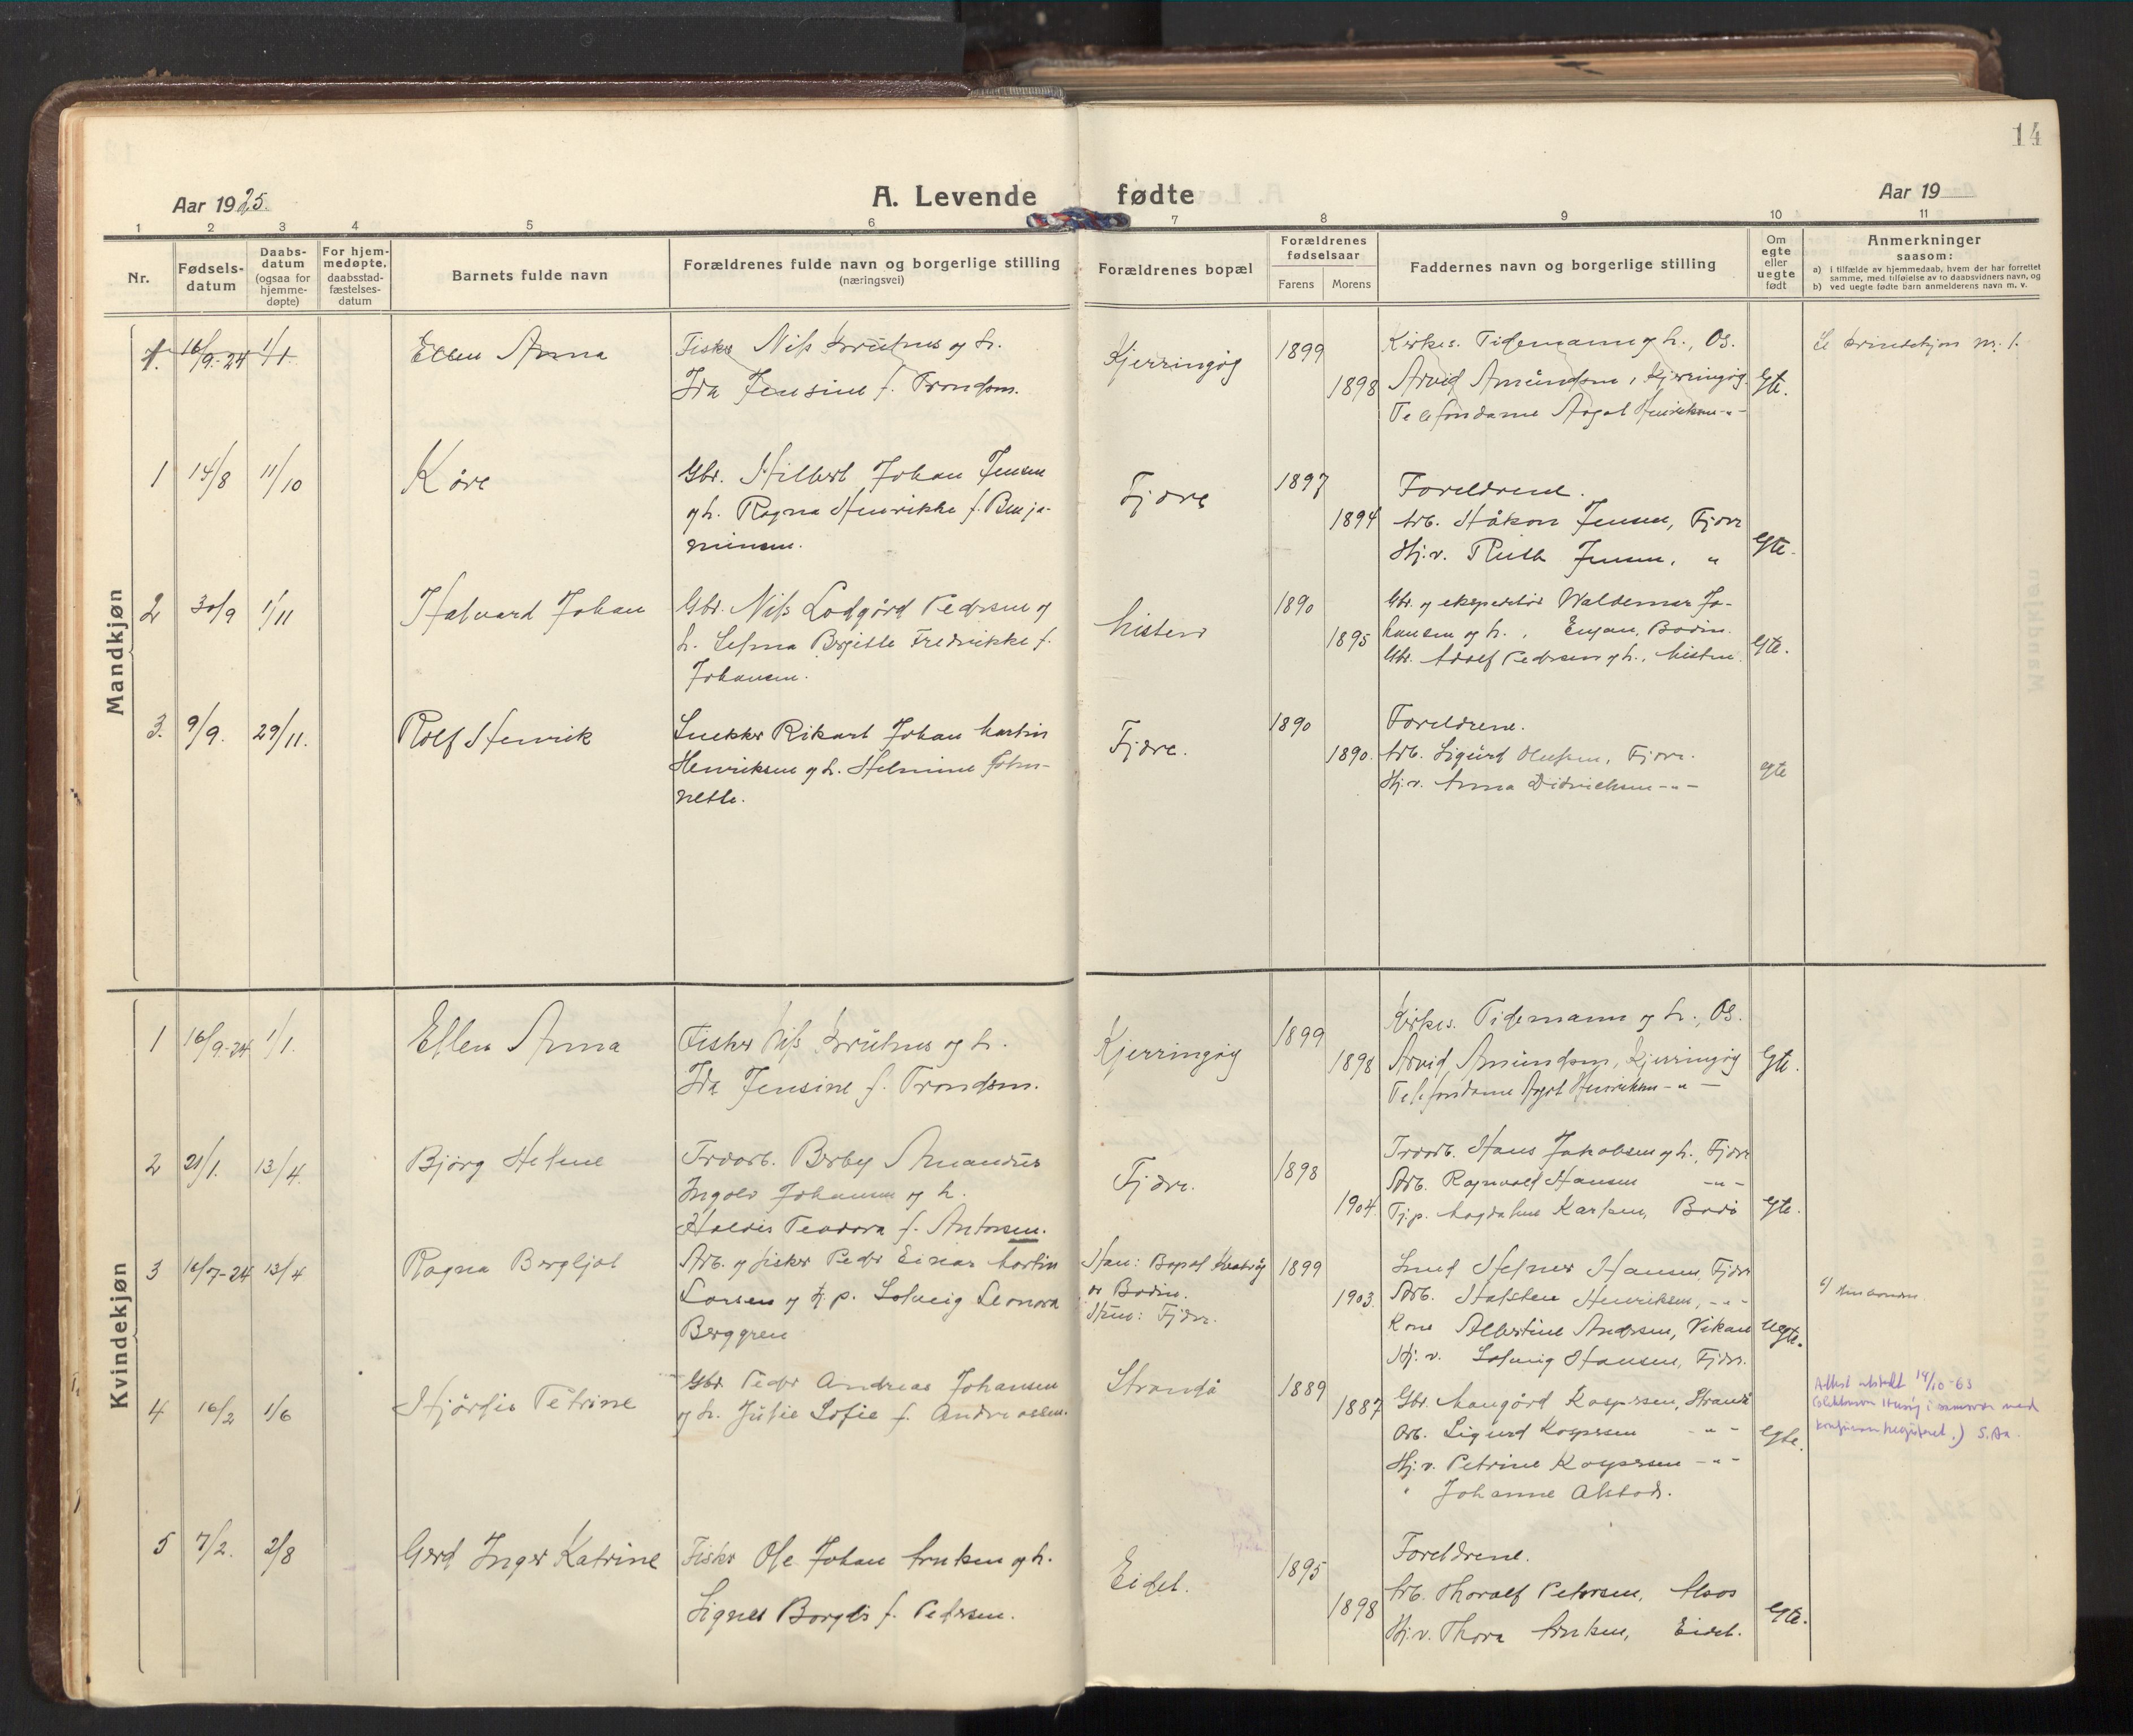 14
Aar 1925.
A. Levende fødte
Aar 19
1 2 3 4 5 6 7 8 9 10 11
Nr.
Fødsels-
datum
Daabs-
datum
(ogsaa for
hjemme-
døpte)
For hjem-
medøpte,
daabsstad-
fæstelses-
datum
Barnets fulde navn
Forældrenes fulde navn og borgerlige stilling
(næringsvei)
Forældrenes bopæl
Forældrenes
fødselsaar
Farens Morens
Faddernes navn og borgerlige stilling
Om
egte
eller
uegte
født
Anmerkninger
saasom:
a) i tilfælde av hjemmedaab, hvem der har forrettet
samme, med tilføielse av to daabsvidners navn, og
b) ved uegte fødte barn anmelderens navn m. v.
Mandkjøn
1. 16/9-24 1/1.
Ellen Anna
Fisker Nils og h.
Ida Jensine f. Trondsen.
Kjerringøy
1899
1898
Kirkes. Tidemann og h., Os.
Arvid Amundsen, Kjerringøy
Telefondame Aagot Henriksen -"-
Gte.
Se kvindekjøn nr. 1.
1 14/8 11/10
Kåre
Gbr. Hilbert Johan Jensen
og h. Ragna Henrikke f. Benja-
minsen.
Fjære
1897
1894
Foreldrene.
Arb. Håkon Jensen, Fjære
Hj.v. Ruth Jensen, "
Gte.
2 30/9 1/11
Halvard Johan
Gbr. Nils Lodgård Pedersen og
h. Selma Bergitte Fredrikke f.
Johansen.
Misten
1890
1895
Gbr. og ekspeditør Waldemar Jo-
hansen og h., Bodin.
Gbr. Adolf Pedersen og h., Misten.
Gte.
3. 9/9. 29/11.
Rolf Henrik
Snekker Rikart Johan Martin
Henriksen og h. Helmine John-
nette.
Fjære.
1890
1890.
Foreldrene.
Arb. Sigurd Olufsen, Fjære.
Hj.v. Anna Didriksen -"-
gte
Kvindekjøn
1 16/9-24 1/1.
Ellen Anna
Fisker Nils og h.
Ida Jensine f. Trondsen.
Kjerringøy
1899
1898
Kirkes. Tidemann og h., Os.
Arvid Amundsen, Kjerringøy
Telefondame Aagot Henriksen -"-
Gte.
2 21/1. 13/4.
Bjørg Helene
Amandus
Ingolv Johansen og h.
Haldis Teodora f. Antonsen.
Fjære.
1898
1904.
Hans Jakobsen og h., Fjære
Arb. Ragnvald Hansen -"-
Tj.p. Magdalene Karlsen, Bodø
Gte.
3 16/7-24 13/4
Ragna Bergljot
Arb. og fisker Peder Einar Martin
Larsen og tj.p. Solveig Leonora
Berggren
Han: Bopæl
Bodin.
Hun: Fjære.
1899
1903.
Smed Helmer Hansen, Fjære
Arb. Halsten Henriksen, -"-
Kone Albertine Andersen, Vikan
Hj.v. Solveig Hansen, Fjære.
Uegte.
4 16/2 1/6
Hjørdis Petrine
Gbr. Peder Andreas Johansen
og h. Julie Sofie f. Andreassen.
Strandå
1889
1887
Gbr. Mangård Kaspersen, Strandå
Arb. Sigurd Kaspersen -"-
Hj.v. Petrine Kaspersen -"-
" Johanne Alstad.
Egte.
Attest utstedt 14/10-63
i samsvar med
S.Aa.
5 7/2. 2/8
Gerd Inger Katrine
Fisker Ole Johan og h.
Signes Borglis f. Pedersen.
Eidet.
1895
1898
Foreldrene.
Arb. Thoralf Petersen, Alsos
Hj.v. Thora Eidet.
Gte.